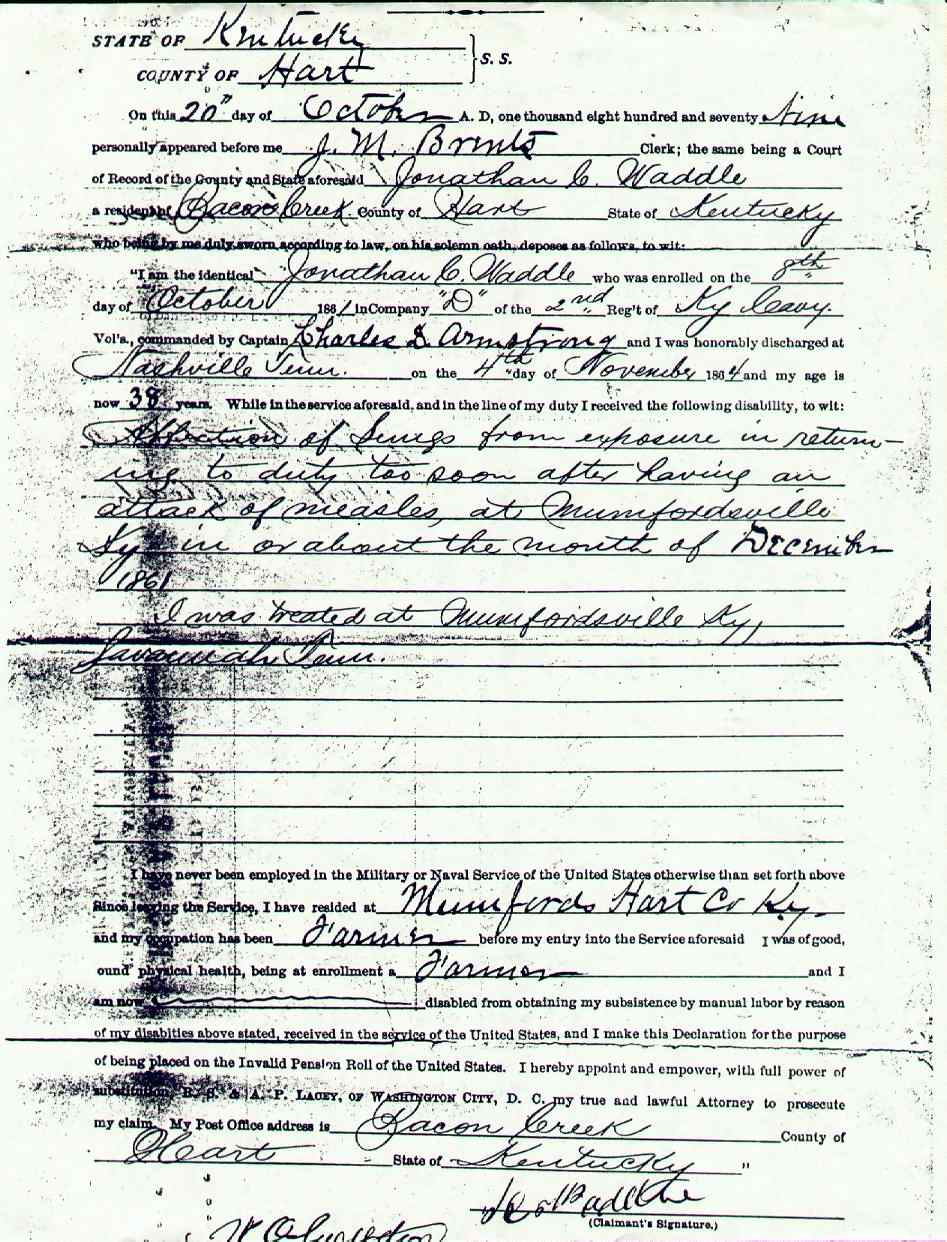 STATE OF Kentucky
COUNTY OF Hart } S. S.
On this 20th day of October A. D, one thousand eight hundred and seventy Nine
personally appeared before me J. M. Brents Clerk; the same being a Court
of Record of the County and State aforesaid Jonathan C. Waddle
a resident of Bacon Creek County of Hart State of Kentucky
who being by me duly sworn according to law, on his solemn oath, deposes as follows, to wit:
"I am the identical Jonathan C. Waddle who was enrolled on the 8th
day of October 1861 in Company "D" of the 2nd Reg't of Ky Cavy.
Vol's., commanded by Captain Charles D. Armstrong and I was honorably discharged at
Nashville Tenn. on the 4th day of November 1864 and my age is
now 38 years. While in the service aforesaid, and in the line of my duty I received the following disability, to wit:
Affection of Lungs from exposure in return-
ing to duty too soon after having an
attack of measles, at Mumfordsville
Ky in or about the month of December
1861
I was treated at Mumfordsville Ky,
Savannah Tenn.
I have never been employed in the Military or Naval Service of the United States otherwise than set forth above
Since leaving the Service, I have resided at Mumfords Hart Co Ky.
and my occupation has been Farmer before my entry into the Service aforesaid I was of good,
ound physical health, being at enrollment a Farmer and I
am now disabled from obtaining my subsistence by manual labor by reason
of my disabities above stated, received in the service of the United States, and I make this Declaration for the purpose
of being placed on the Invalid Pension Roll of the United States. I hereby appoint and empower, with full power of
substitution, R. S. & A. P. LACEY, OF WASHINGTON CITY, D. C. my true and lawful Attorney to prosecute
my claim. My Post Office address is Bacon Creek County of
Hart State of Kentucky "
Waddle
(Claimant's Signature.)